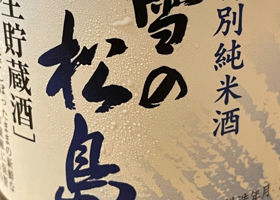 別純米酒
雪の
松島
生貯蔵酒］
造年月